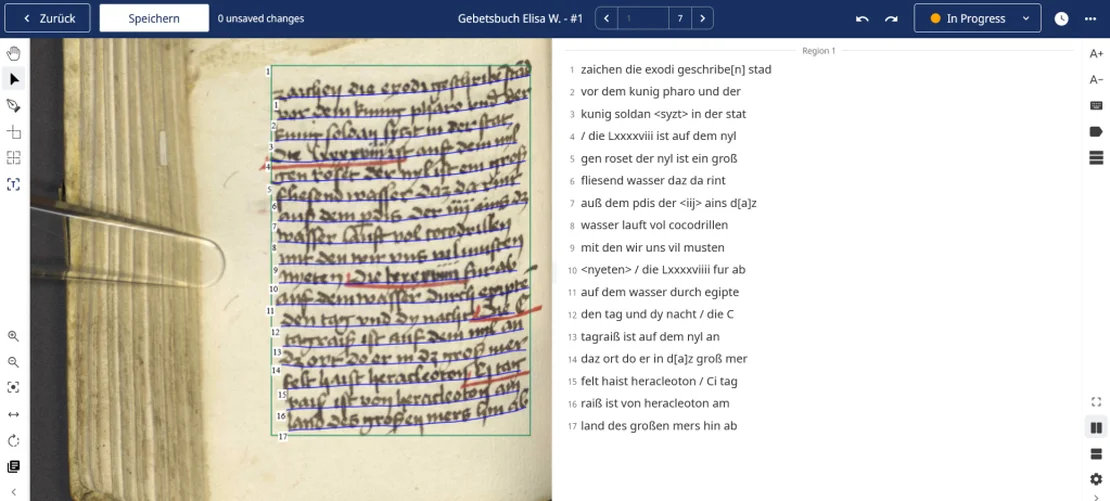 Zurück
Speichern
0 unsaved changes
Gebetsbuch Elisa W. - #1
1
7
In Progress
Region 1
A+
A−
1 zaichen die exodi geschribe[n] stad
2 vor dem kunig pharo und der
3 kunig soldan <syzt> in der stat
4 / die Lxxxxviii ist auf dem nyl
5 gen roset der nyl ist ein groß
6 fliesend wasser daz da rint
7 auß dem pdis der <iij> ains d[a]z
8 wasser lauft vol cocodrillen
9 mit den wir uns vil musten
10 <nyeten> / die Lxxxxviiii fur ab
11 auf dem wasser durch egipte
12 den tag und dy nacht / die C
13 tagraiß ist auf dem nyl an
14 daz ort do er in d[a]z groß mer
15 felt haist heracleoton / Ci tag
16 raiß ist von heracleoton am
17 land des großen mers hin ab